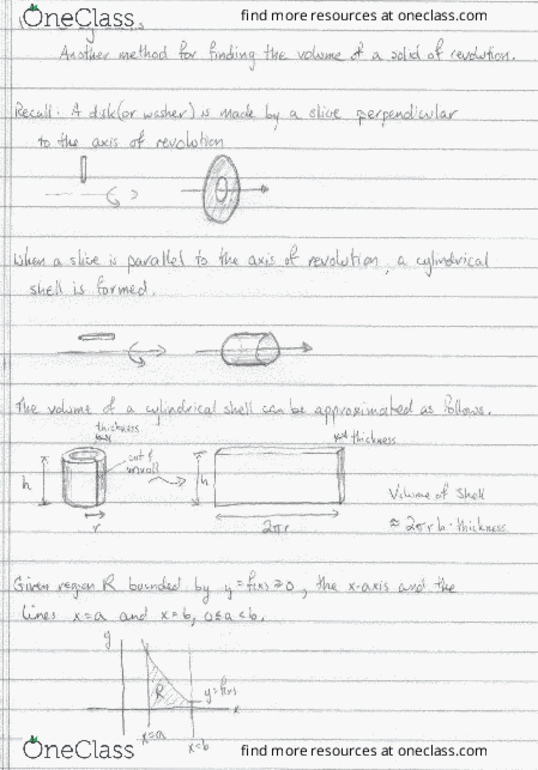 OneClass find more resources at oneclass.com
Another method for finding the volume of a solid of revolution.
Recall: A disk (or washer) is made by a slice perpendicular
to the axis of revolution
When a slice is parallel to the axis of revolution, a cylindrical
shell is formed.
The volume of a cylindrical shell can be approximated as follows.
thickness
thickness
cut &
unroll
h
h
Volume of Shell
r
2πr
≈ 2πrh·thickness
Given region R bounded by y=f(x)≥0, the x-axis and the
lines x=a and x=b, 0≤a<b.
y
R
y=f(x)
x
x=a
x=b
OneClass find more resources at oneclass.com